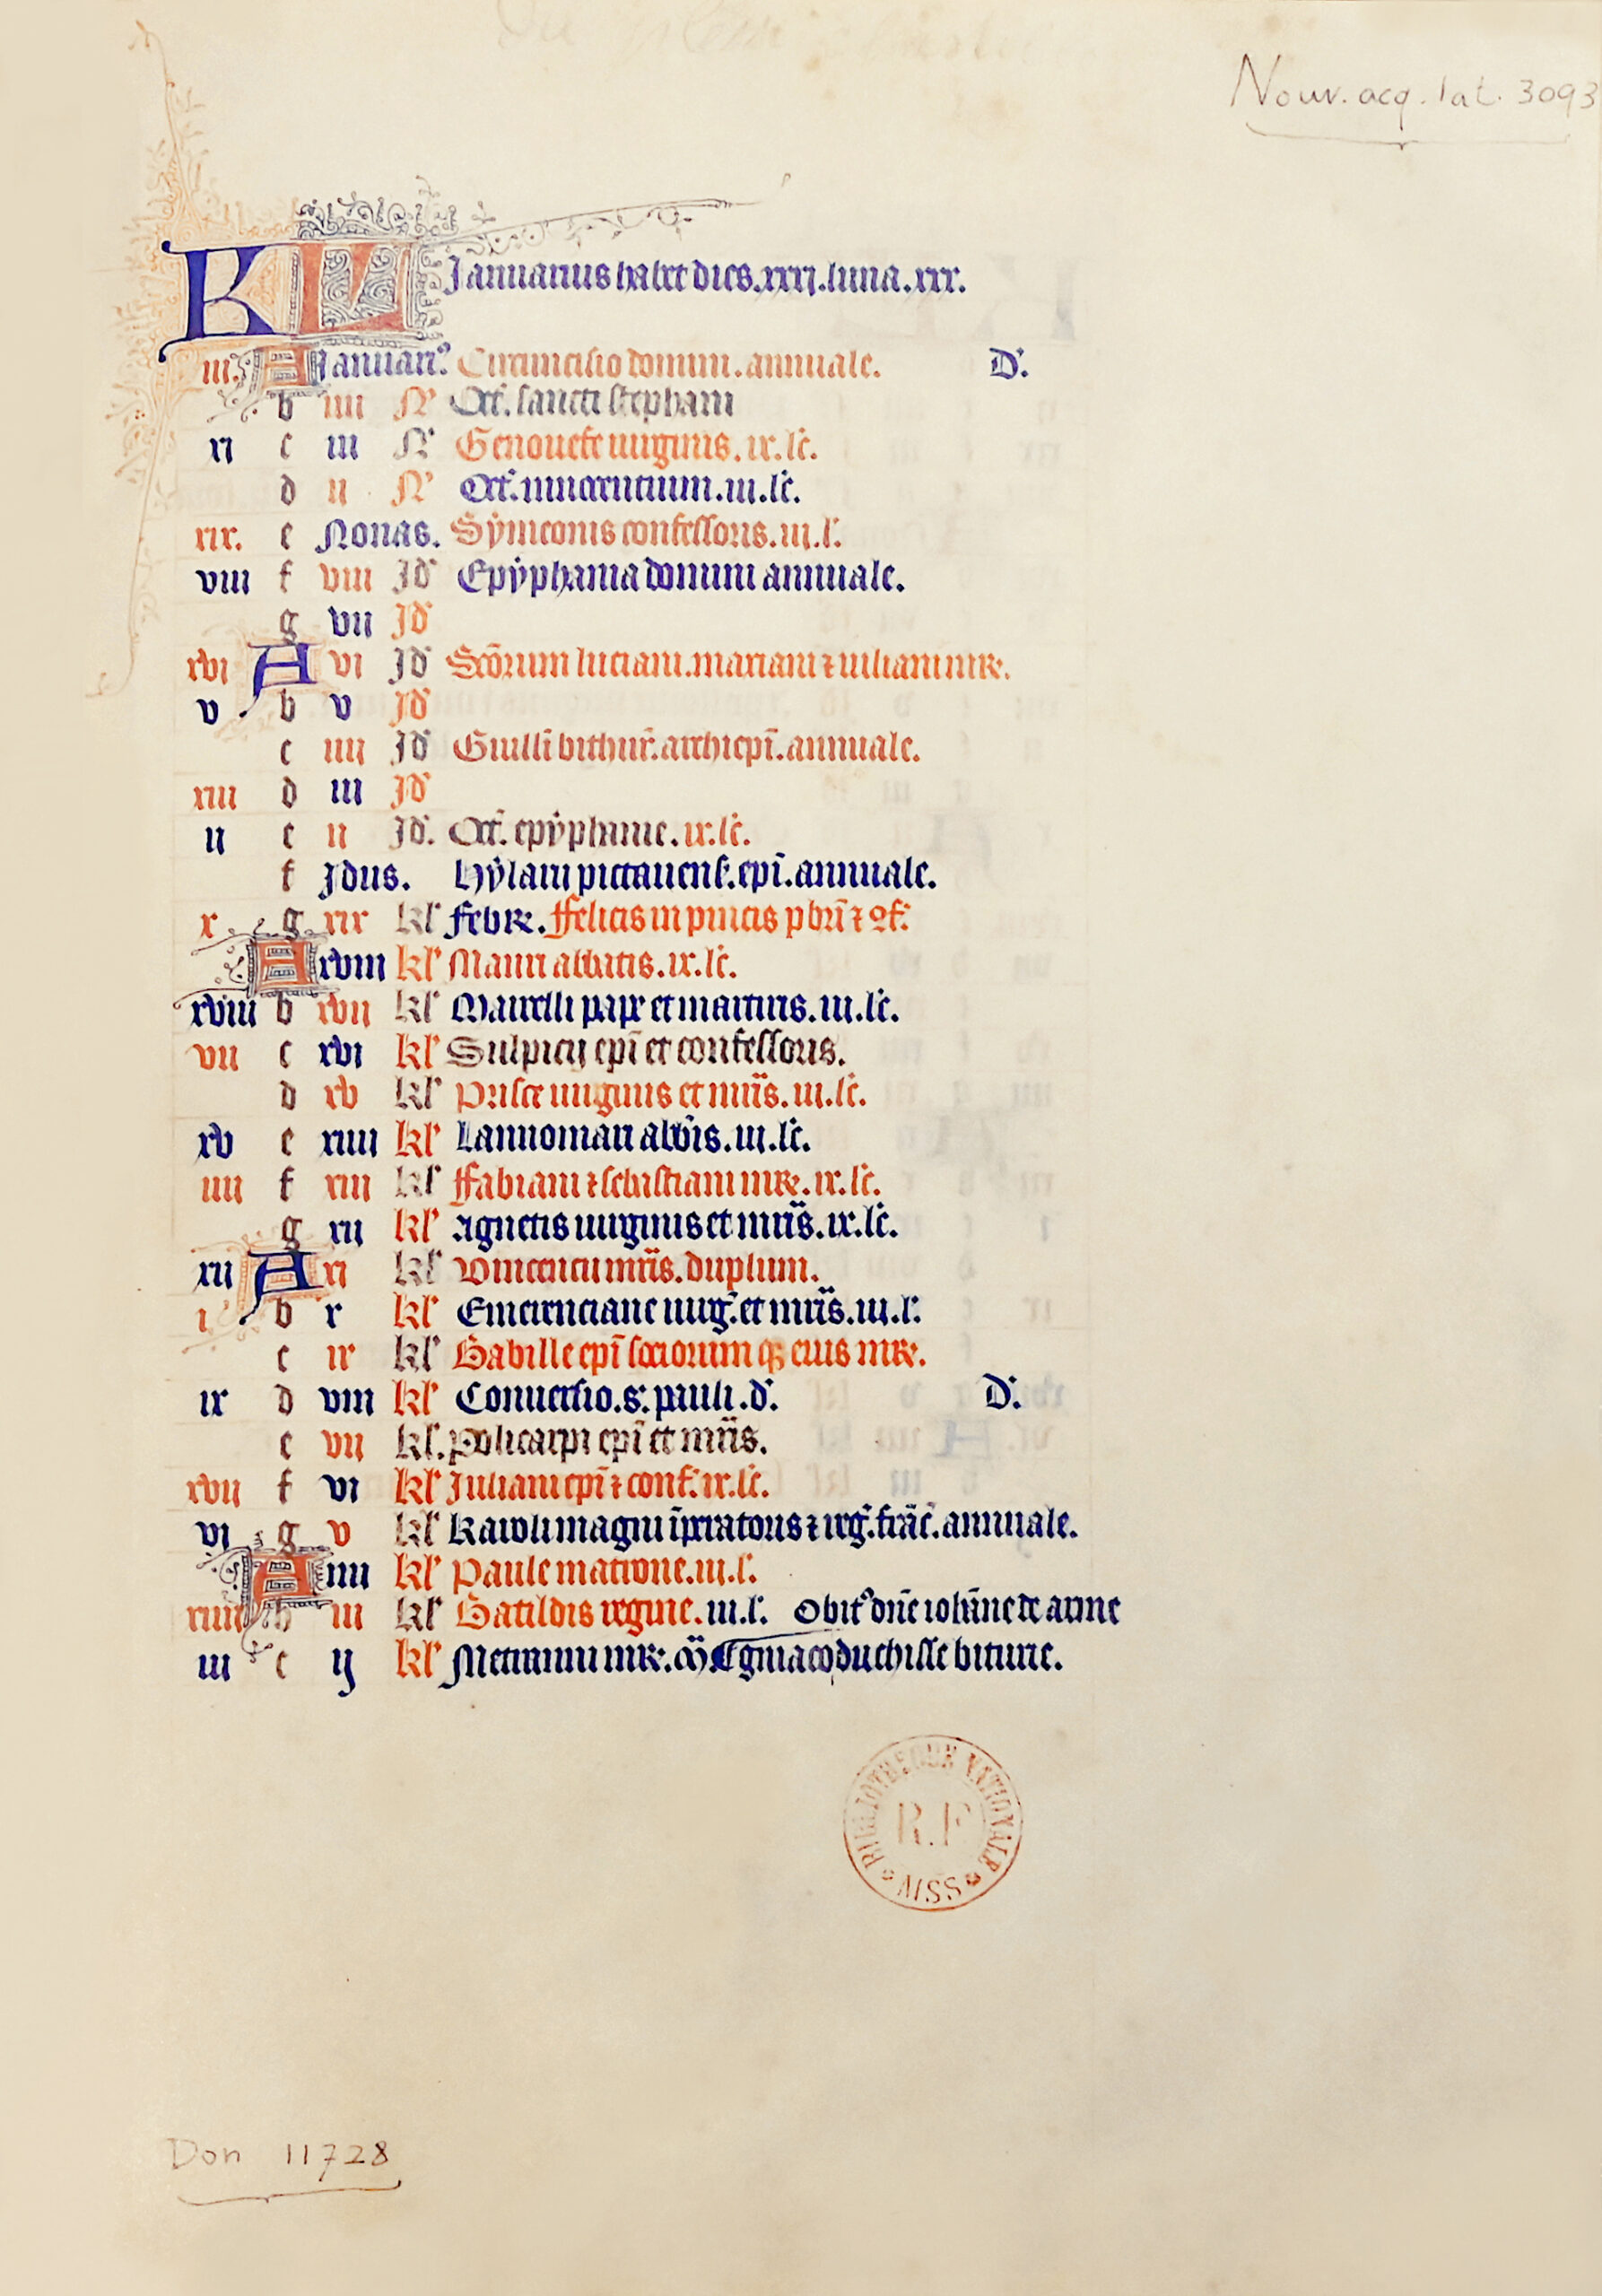 Nouv. acq. lat. 3093
KL Januarius habet dies.xxxi.luna.xxx.
iii. A Januari⁹ Circumcisio domini.annuale. D'.
b iiii N' Oct'. sancti stephani
xi c iii N' Genouefe uirginis.ix.lc̄.
d ii N' Oct'. innocentium.iii.lc̄.
xix. e Nonas. Symeonis confessoris.iii.l'.
viii f viii Jd' Epyphania domini annuale.
g vii Jd'
xvi A vi Jd' Sc̄orum luciani.maxiani ⁊ iuliani mr̄.
v b v Jd'
c iiii Jd' Guill'i bithur̄.archiepī.annuale.
xiii d iii Jd'
ii e ii Jd'. Oct'. epyphanie.ix.lc̄.
f Jdus. Hylarii pictauens'.epī.annuale.
x. g xix kl' febr̄. ffelicis in pincis pbrī ⁊ ꝯf'.
A xviii kl' Mauri abbatis.ix.lc̄.
xviii b xvii kl' Marcelli pape et martiris.iii.lc̄.
vii c xvi kl' Sulpicij epī et confessoris.
d xv kl' Prisce uirginis et mr̄is.iii.lc̄.
xv e xiiii kl' Launomari abb̄is.iii.lc̄.
iiii f xiii kl' ffabiani ⁊ sebastiani mr̄.ix.lc̄.
g xii kl' Agnetis uirginis et mr̄is.ix.lc̄.
xii A xi kl' Vincencii mr̄is.duplum.
i b x kl' Emerenciane uirg'.et mr̄is.iii.l'.
c ix kl' Babille epī sociorumqꝫ eius mr̄.
ix d viii kl' Conuersio.s'.pauli.d'. D'.
e vii kl'. Policarpi epī et mr̄is.
xvii f vi kl' Juliani epī ⁊ conf'.ix.lc̄.
vi g v kl' Karoli magni īp̄ratoris ⁊ reg'.frāc̄.annuale.
A iiii kl' Paule matrone.iii.l'.
xiiii b iii kl' Batildis regine.iii.l'. Obit⁹ dn̄e ioh̄ne de arme
iii c ij kl' Metranni mr̄. gniaco duchisse biturie.
BIBLIOTHEQUE NATIONALE
R.F
MSS
Don 11728